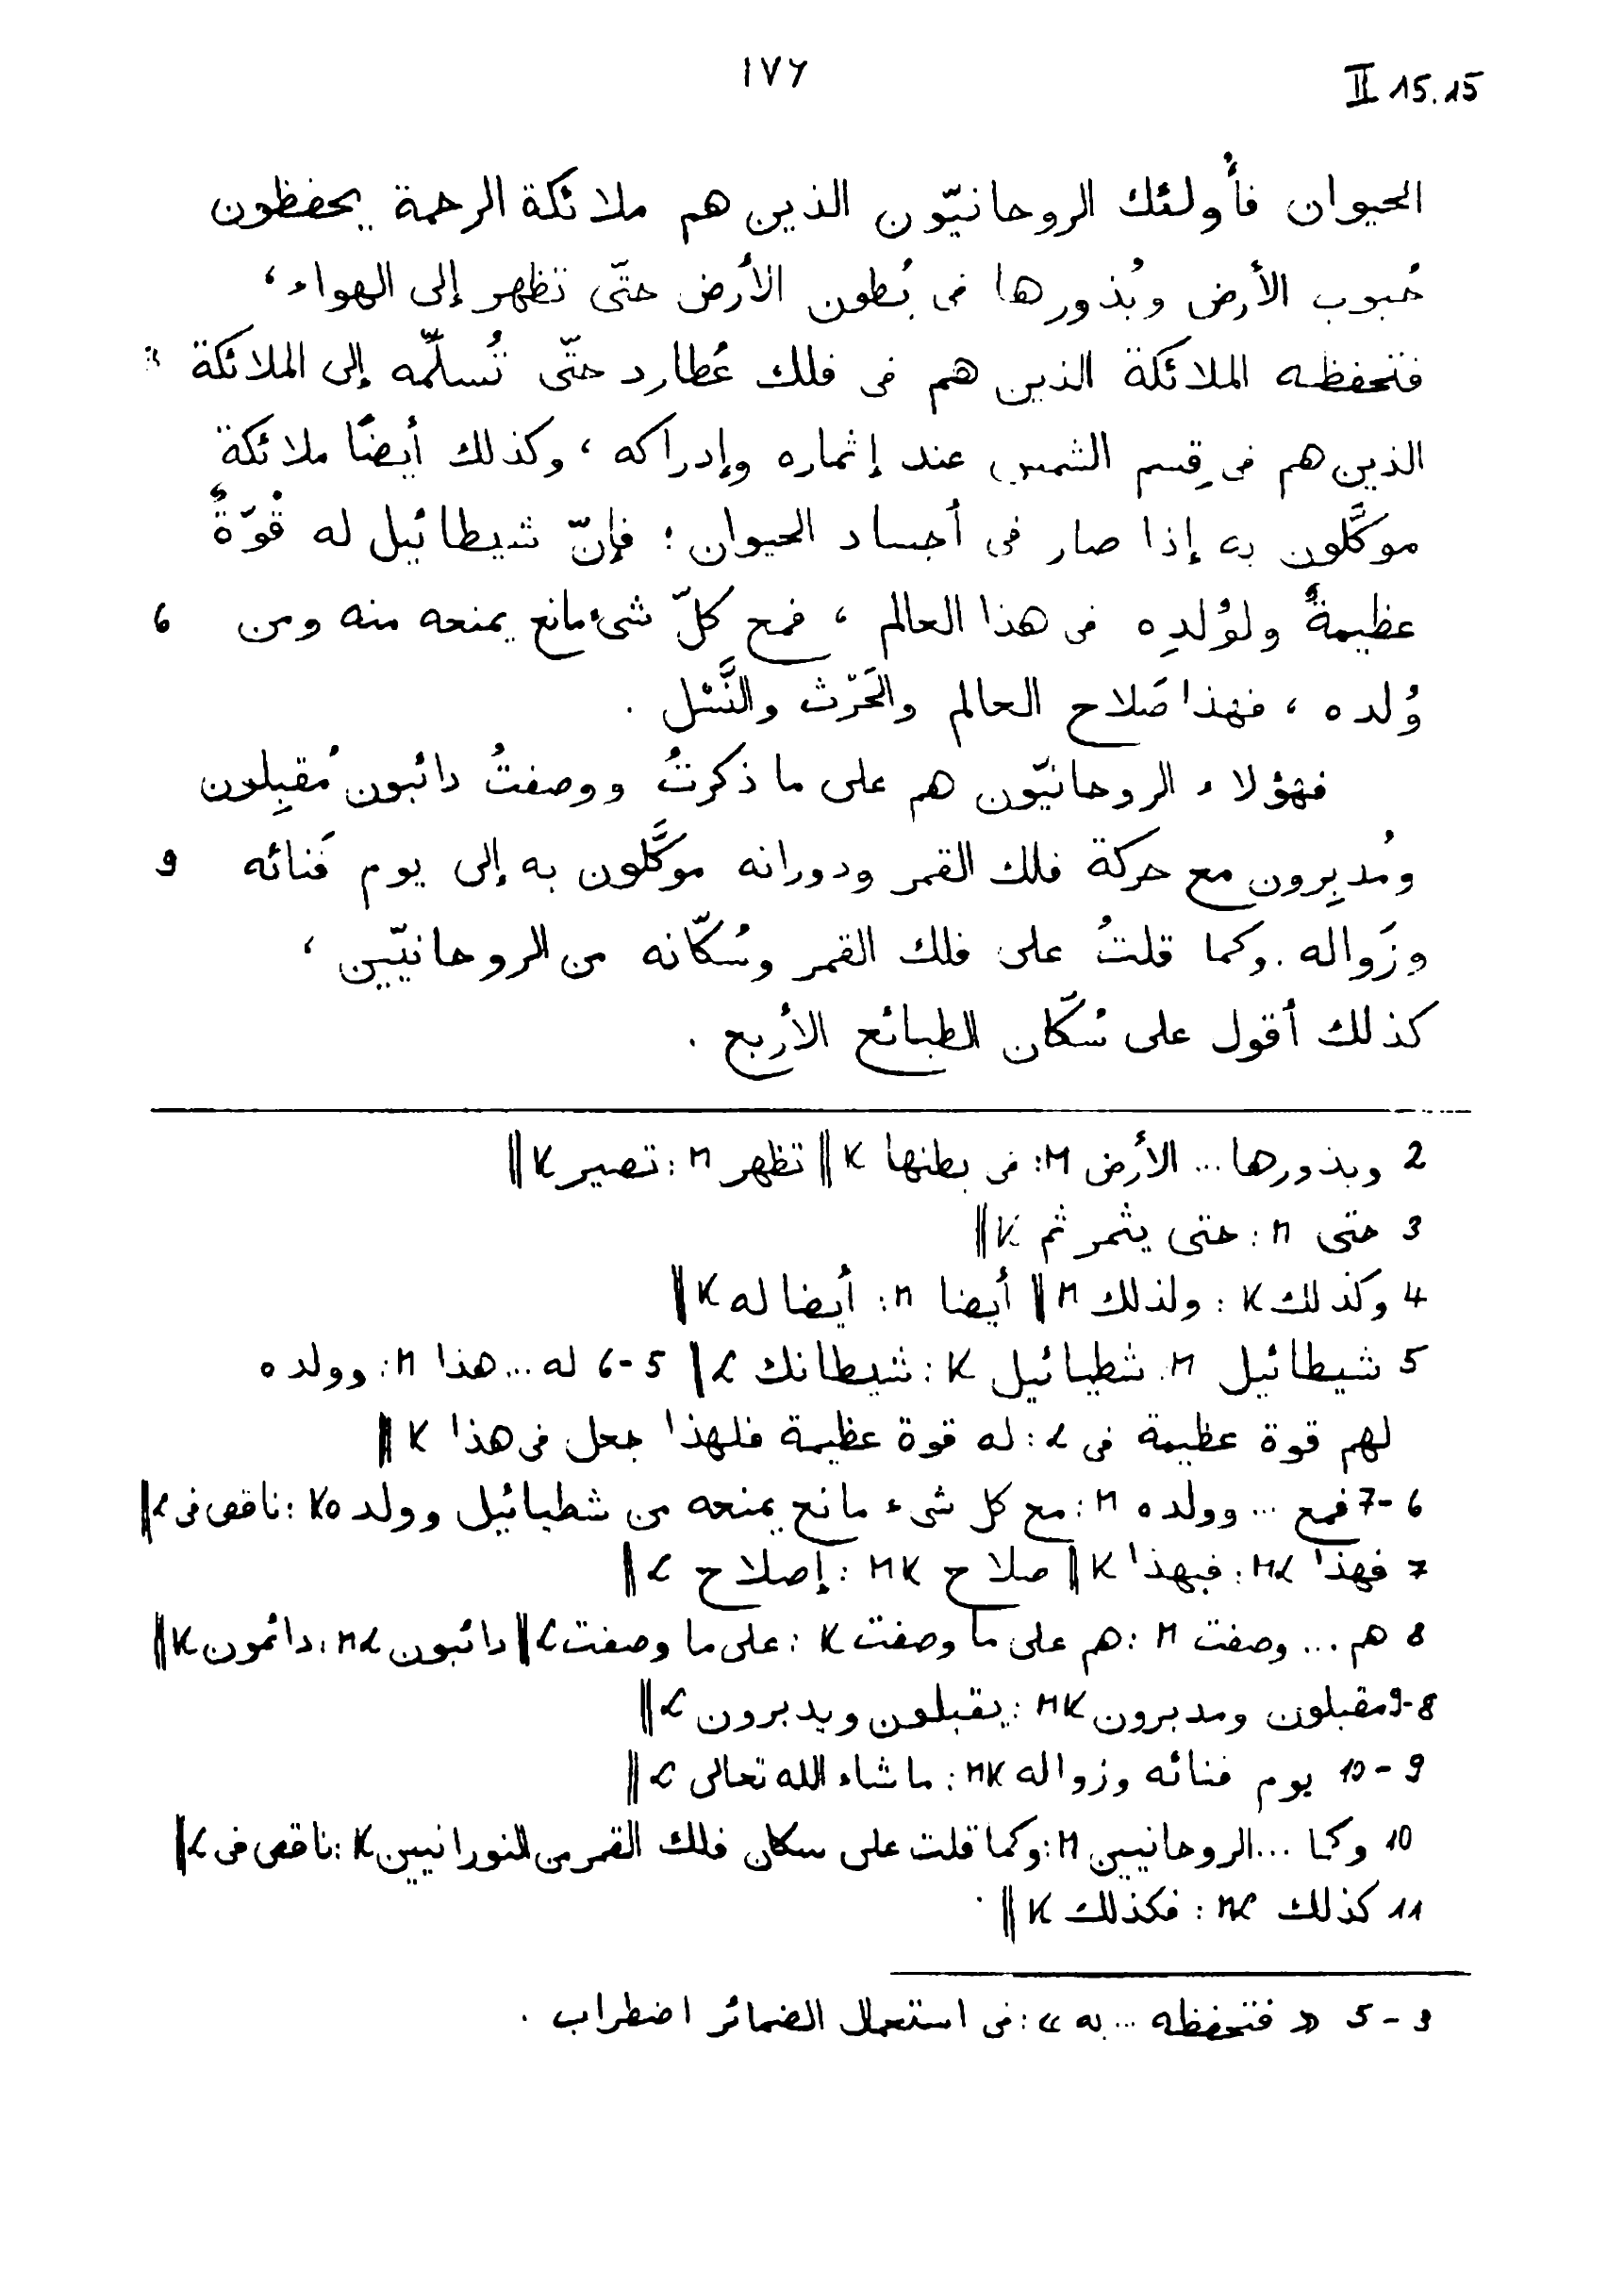 ١٧٦
II 15.15
الحيوان فأُولئك الروحانيّون الذين هم ملائكة الرحمة يحفظون
حُبوب الأرض وبُذورها فى بُطون الأرض حتّى تظهر إلى الهواء،
فتحفظه الملائكة الذين هم فى فلك عُطارد حتّى تُسلّمه إلى الملائكة 3
الذين هم فى قِسم الشمس عند إثماره وإدراكه، وكذلك أيضًا ملائكة
موكَّلون به إذا صار فى أجساد الحيوان؛ فإنّ شيطائيل له قُوّةٌ
عظيمةٌ ولوُلدِه فى هذا العالم، فمع كلّ شىء مانع يمنعه منه ومن 6
وُلده، فهذا صَلاح العالم والحَرْث والنَّسْل.
فهؤلاء الروحانيّون هم على ما ذكرتُ ووصفتُ دائبون مُقبِلون
ومُدبِرون مع حركة فلك القمر ودورانه موكَّلون به إلى يوم فَنائه 9
وزَواله. وكما قلتُ على فلك القمر وسُكّانه من الروحانيّين،
كذلك أقول على سُكّان الطبائع الأربع.
2 وبذورها... الأرض M: فى بطنها K ‖ تظهر M: تصير K ‖
3 حتى M: حتى يثمر ثم K ‖
4 وكذلك K: ولذلك M ‖ أيضا M: أيضا له K ‖
5 شيطائيل M: شطيائيل K: شيطانك L ‖ 5-6 له... هذا M: وولده
لهم قوة عظيمة فى L: له قوة عظيمة فلهذا جعل فى هذا K ‖
6-7 فمع ... وولده M: مع كل شىء مانع يمنعه من شطيائيل وولده K: ناقص فى L ‖
7 فهذا ML: فبهذا K ‖ صلاح MK: إصلاح L ‖
8 هم ... وصفت M: هم على ما وصفت K: على ما وصفت L ‖ دائبون ML: دائمون K ‖
8-9 مقبلون ومدبرون MK: يقبلون ويدبرون L ‖
9-10 يوم فنائه وزواله MK: ما شاء الله تعالى L ‖
10 وكما ... الروحانيين M: وكما قلت على سكان فلك القمر من النورانيين K: ناقص فى L ‖
11 كذلك ML: فكذلك K ‖
3-5 « فتحفظه ... به »: فى استعمال الضمائر اضطراب.